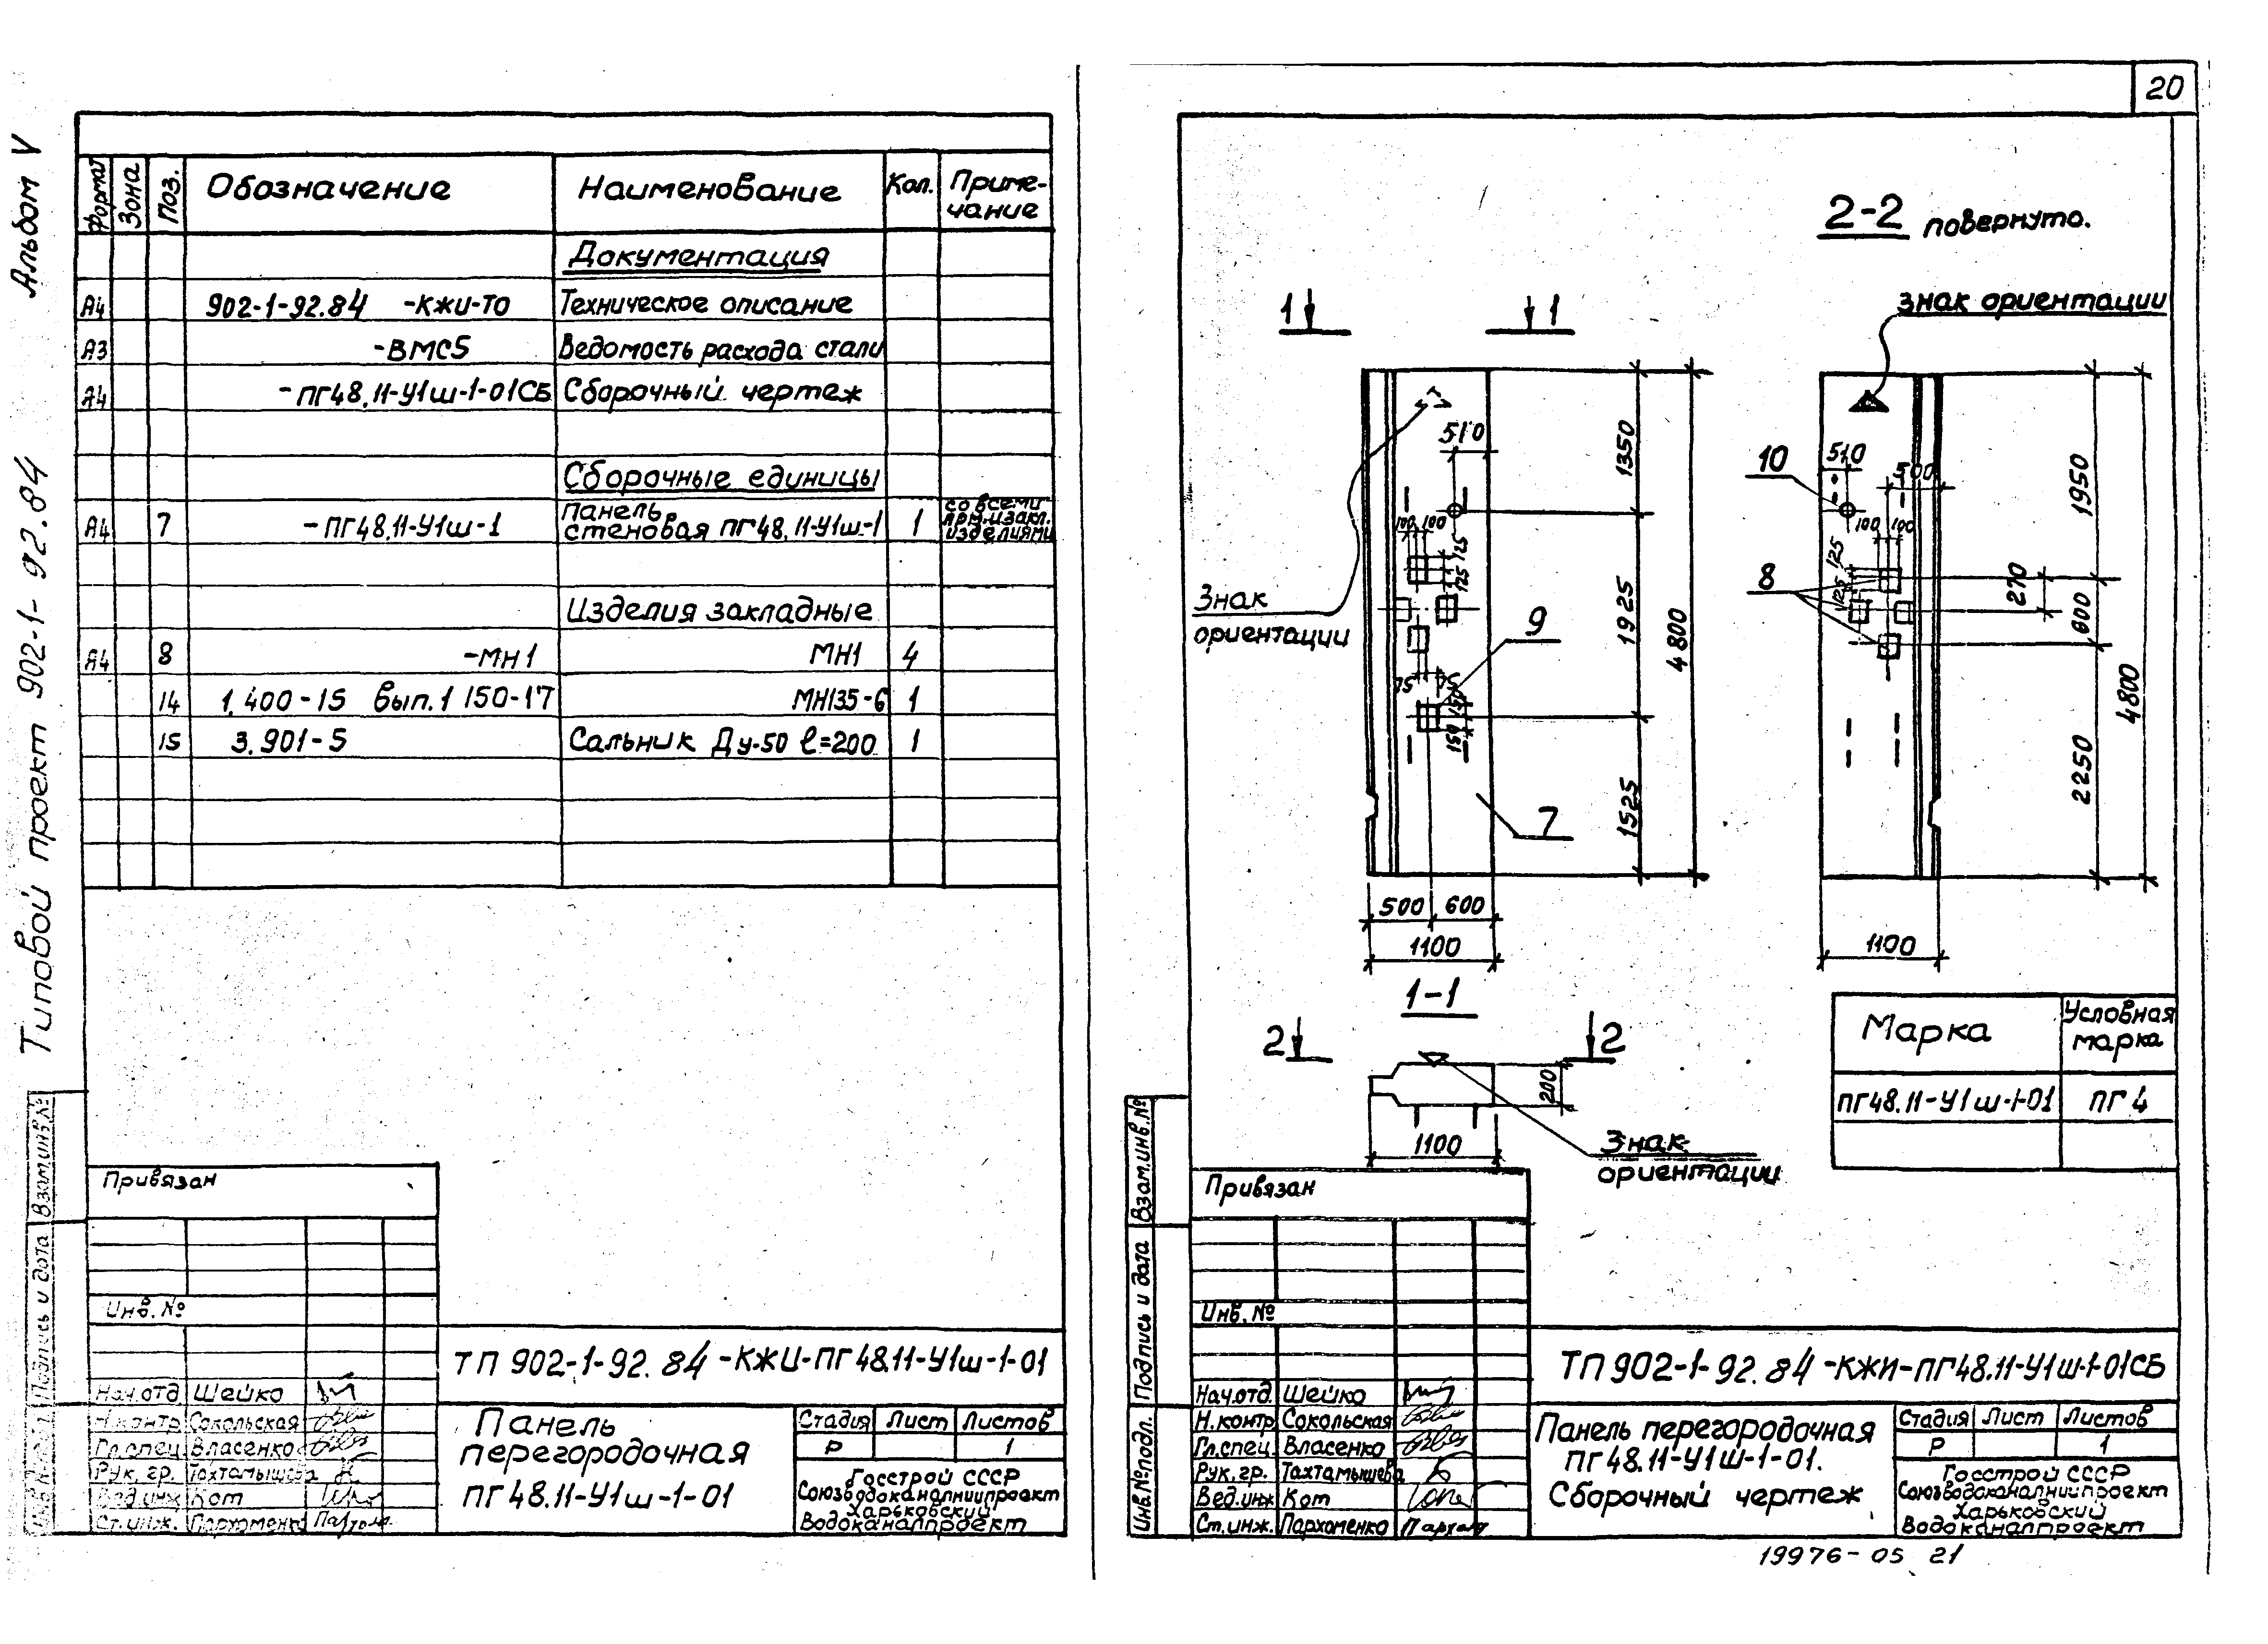 Альбом V
Типовой проект 902-1-92.84
Формат Зона Поз. Обозначение Наименование Кол. Приме-
чание
Документация
А4 902-1-92.84 -КЖИ-ТО Техническое описание
А3 -ВМС5 Ведомость расхода стали
А4 -ПГ48.11-У1ш-1-01СБ Сборочный чертеж
Сборочные единицы
А4 7 -ПГ48.11-У1ш-1 Панель
стеновая ПГ48.11-У1ш-1 1 со всеми
изделиями
Изделия закладные
А4 8 -МН1 МН1 4
14 1.400-15 вып.1 150-17 МН135-6 1
15 3.901-5 Сальник Ду-50 ℓ=200 1
Взам.инв.№
Подпись и дата
Привязан
Инв. №
Нач.отд Шейко
Н.контр Сокольская
Гл.спец Власенко
Рук.гр. Тахтамышева
Вед.инж Кот
Ст.инж. Пархоменко
ТП 902-1-92.84 -КЖИ-ПГ48.11-У1ш-1-01
Панель
перегородочная
ПГ48.11-У1ш-1-01
Стадия Лист Листов
Р 1
Госстрой СССР
Союзводоканалниипроект
Харьковский
Водоканалпроект
20
2-2 повернуто.
1 1
знак ориентации
510
1350
100 100
125
125
Знак
ориентации
1925
4800
9
75 75
150
150
7
1525
500 600
1100
10
510
500
1950
100 100
125
125
8
270
600
4800
2250
1100
1-1
2 2
200
1100
Знак
ориентации
Марка Условная
марка
ПГ48.11-У1ш-1-01 ПГ4
Взам.инв.№
Подпись и дата
Инв.№подл.
Привязан
Инв. №
Нач.отд. Шейко
Н.контр Сокольская
Гл.спец. Власенко
Рук.гр. Тахтамышева
Вед.инж Кот
Ст.инж. Пархоменко
ТП 902-1-92.84 -КЖИ-ПГ48.11-У1ш-1-01СБ
Панель перегородочная
ПГ48.11-У1ш-1-01.
Сборочный чертеж
Стадия Лист Листов
Р 1
Госстрой СССР
Союзводоканалниипроект
Харьковский
Водоканалпроект
19976-05 21